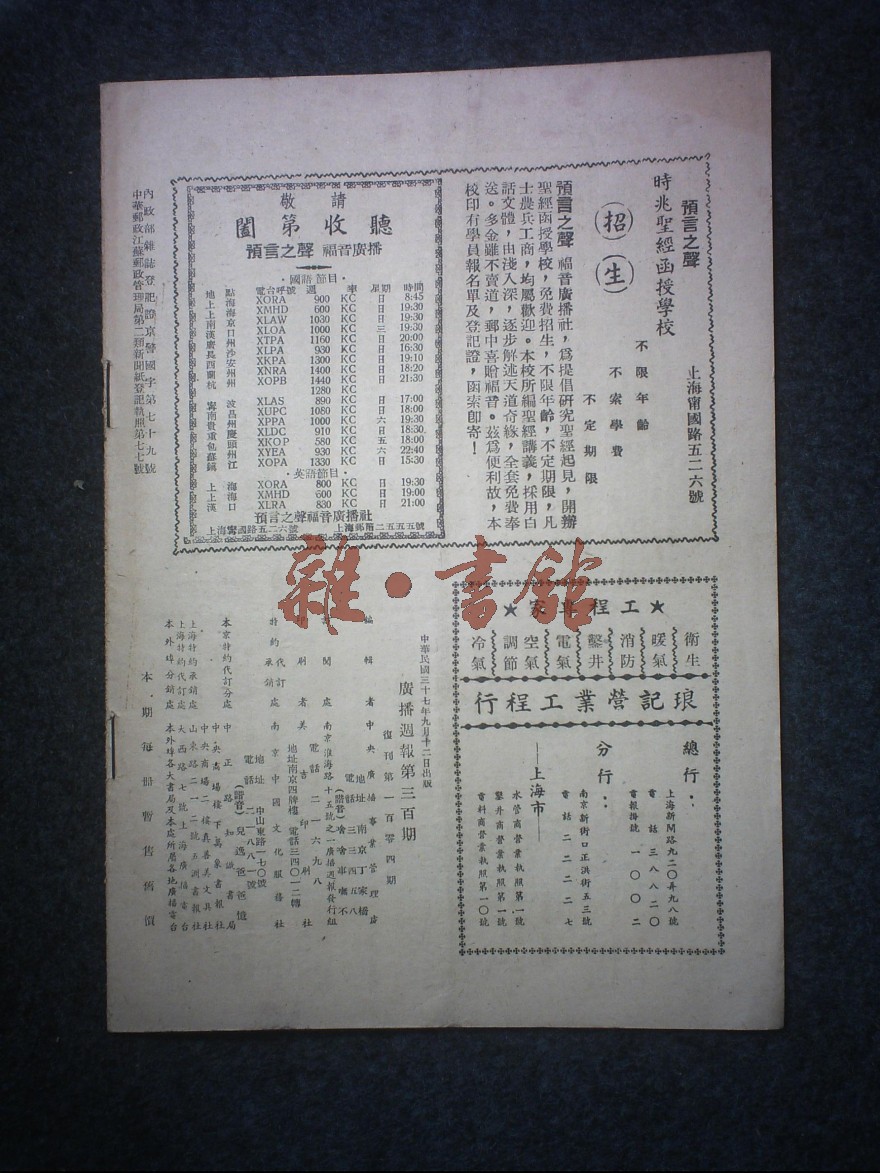 預言之聲
時兆聖經函授學校
上海甯國路五二六號
招生
不限年齡
不索學費
不定期限
預言之聲福音廣播社，爲提倡研究聖經起見，開辦
聖經函授學校，免費招生，不限年齡，不定期限，凡
士農兵工商，均屬歡迎。本校所編聖經講義，採用白
話文體，由淺入深，逐步解述天道奇緣，全套免費奉
送。多金雖不賣道，郵中喜贈福音。茲爲便利故，本
校印有學員報名單及登記證，函索卽寄！
敬請
闔第收聽
預言之聲 福音廣播
·國語節目·
地點 電台呼號 週率 星期 時間
上海 XORA 900 KC 日 8:45
上海 XMHD 600 KC 日 19:30
南京 XLAW 1030 KC 日 19:30
漢口 XLOA 1000 KC 三 19:30
廣州 XTPA 1160 KC 日 20:00
長沙 XLPA 930 KC 日 16:30
西安 XKPA 1300 KC 日 19:10
蘭州 XNRA 1400 KC 日 18:20
杭州 XOPB 1440 KC 日 21:30
1280 KC
甯波 XLAS 890 KC 日 17:00
南昌 XUPC 1080 KC 日 18:00
貴州 XPPA 1000 KC 六 19:30
重慶 XLDC 910 KC 日 18:30
包頭 XKOP 580 KC 五 18:00
蘇州 XYEA 930 KC 六 22:40
鎮江 XOPA 1330 KC 日 15:30
·英語節目·
上海 XORA 800 KC 日 19:30
上海 XMHD 600 KC 日 19:00
漢口 XLRA 830 KC 日 21:00
預言之聲福音廣播社
上海甯國路五二六號 上海郵箱二五五五號
內政部雜誌登記證京警國字第七十九號
中華郵政江蘇郵政管理局第二類新聞紙登記執照第七七號
★工程專家★
衛生
暖氣
消防
鑿井
電氣
空氣
調節
冷氣
琅記營業工程行
總行：
上海新閘路九二〇弄九八號
電話三八八二〇
電報掛號一〇〇二
分行：
南京新街口正洪街五三號
電話二二二二七
——上海市——
水管商營業執照第一號
鑿井商營業執照第一號
電料商營業執照第一〇號
中華民國三十七年九月十二日出版
廣播週報第三百期
復刊第一百零四期
編輯者 中央廣播事業管理處
地址 南京丁家橋
電話 三三四五八
處 南京淮海路十五號之一廣播週報發行組
電話 二一六九八
印刷者 美吉印刷社
地址南京四牌樓 電話三四〇一二轉
特約代訂承銷處 南京中國文化服務社
地址 中山東路一七〇號
電話 二一八八一號
本京特約代訂分處 中正路知識書局
中央商場樓下萬象書報社
中央商場二樓真善美文具社
上海特約承銷處 山東路二一二號五洲書報社
上海特約代訂處 大西路七號上海廣播電台
本外埠分銷處 本外埠各大書局及本處所屬各地廣播電台
本·期每冊暫售舊價
雜·書館